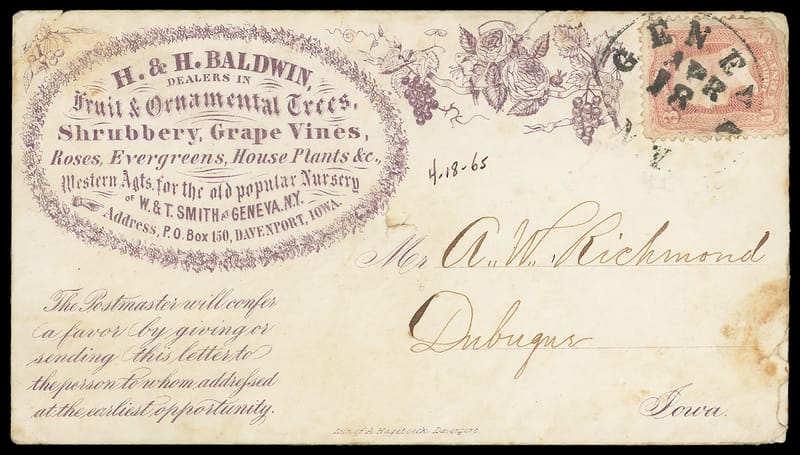 H. & H. BALDWIN,
DEALERS IN
Fruit & Ornamental Trees,
Shrubbery, Grape Vines,
Roses, Evergreens, House Plants &c.,
Western Agts. for the old popular Nursery
OF W. & T. SMITH OF GENEVA, N.Y.
Address, P.O. Box 150, DAVENPORT, IOWA.
GENEVA
APR
18
N.Y.
4-18-65
Mr A. W. Richmond
Dubuque
Iowa.
The Postmaster will confer
a favor by giving or
sending this letter to
the person to whom addressed
at the earliest opportunity.
Lith. of A. Hageboeck, Davenport.